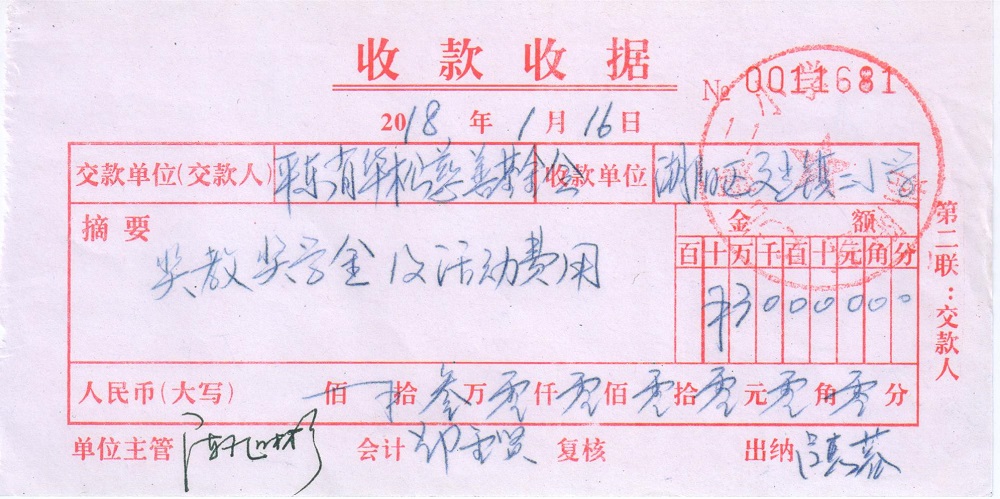 收款收据
№ 0011681
2018 年 1 月 16 日
交款单位(交款人) 广东省华松慈善基金会 收款单位 潮阳区文光镇二小学
摘要 金额
百十万千百十元角分
奖教奖学金及活动费用
¥3000000
人民币(大写) 佰 拾 叁万零仟零佰零拾零元零角零分
单位主管 会计 复核 出纳
第二联:交款人